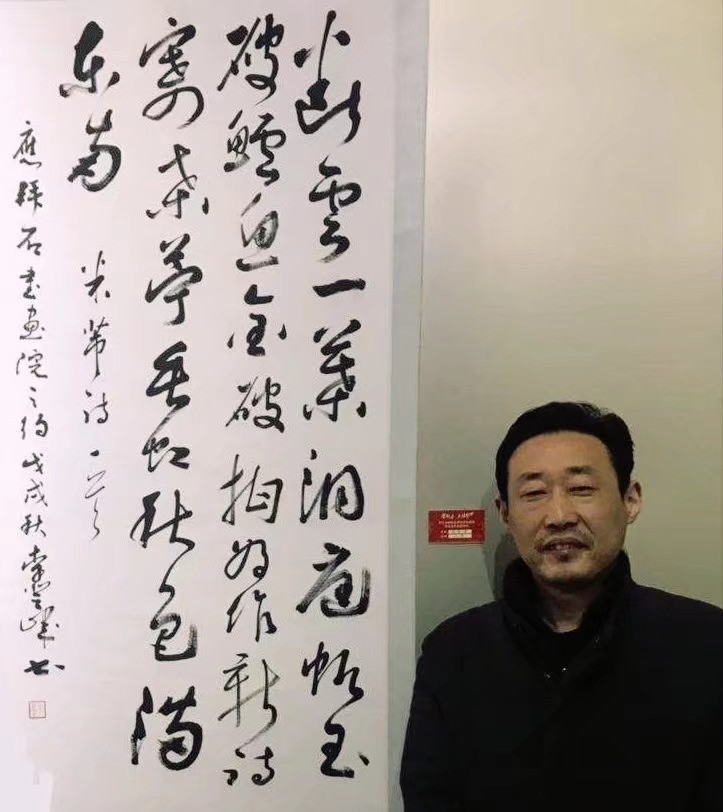 断雲一葉洞庭帆玉
破鱸魚金破柑好作新诗
寄桑苧垂虹秋色满
东南
米芾诗一首
應石书画院之约戊戌秋峰书